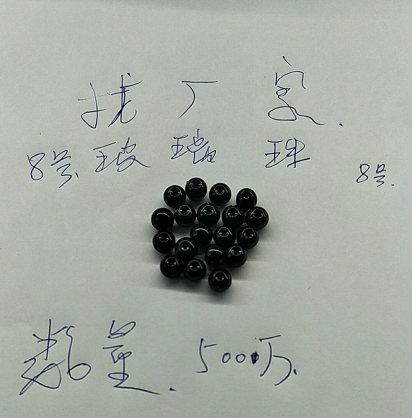 找厂家.
8号.玻璃珠 8号.
数量.500万.